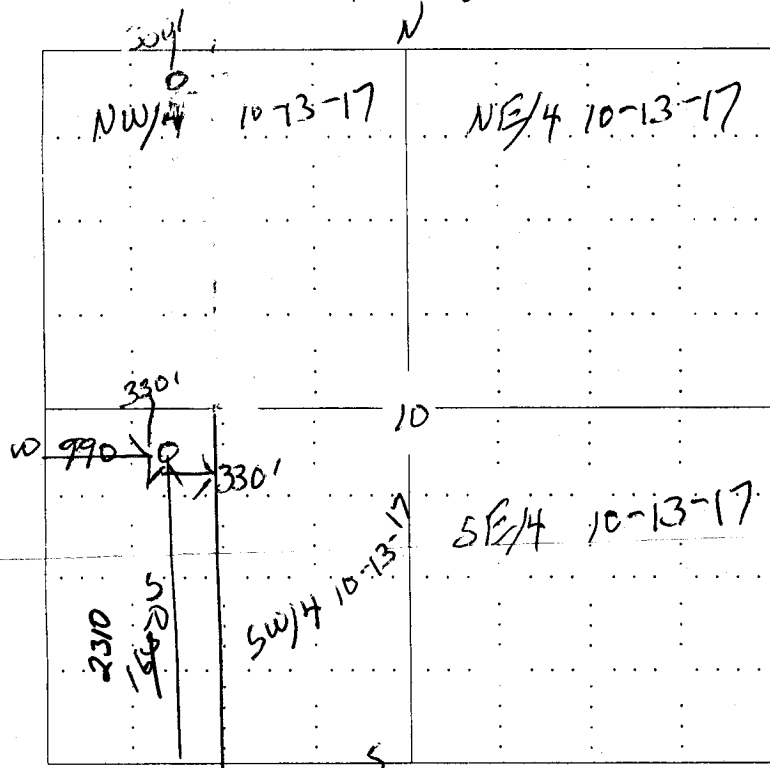 N
NW/4 10-13-17
NE/4 10-13-17
330'
10
W 990
330'
SE/4 10-13-17
SW/4 10-13-17
2310
S
S